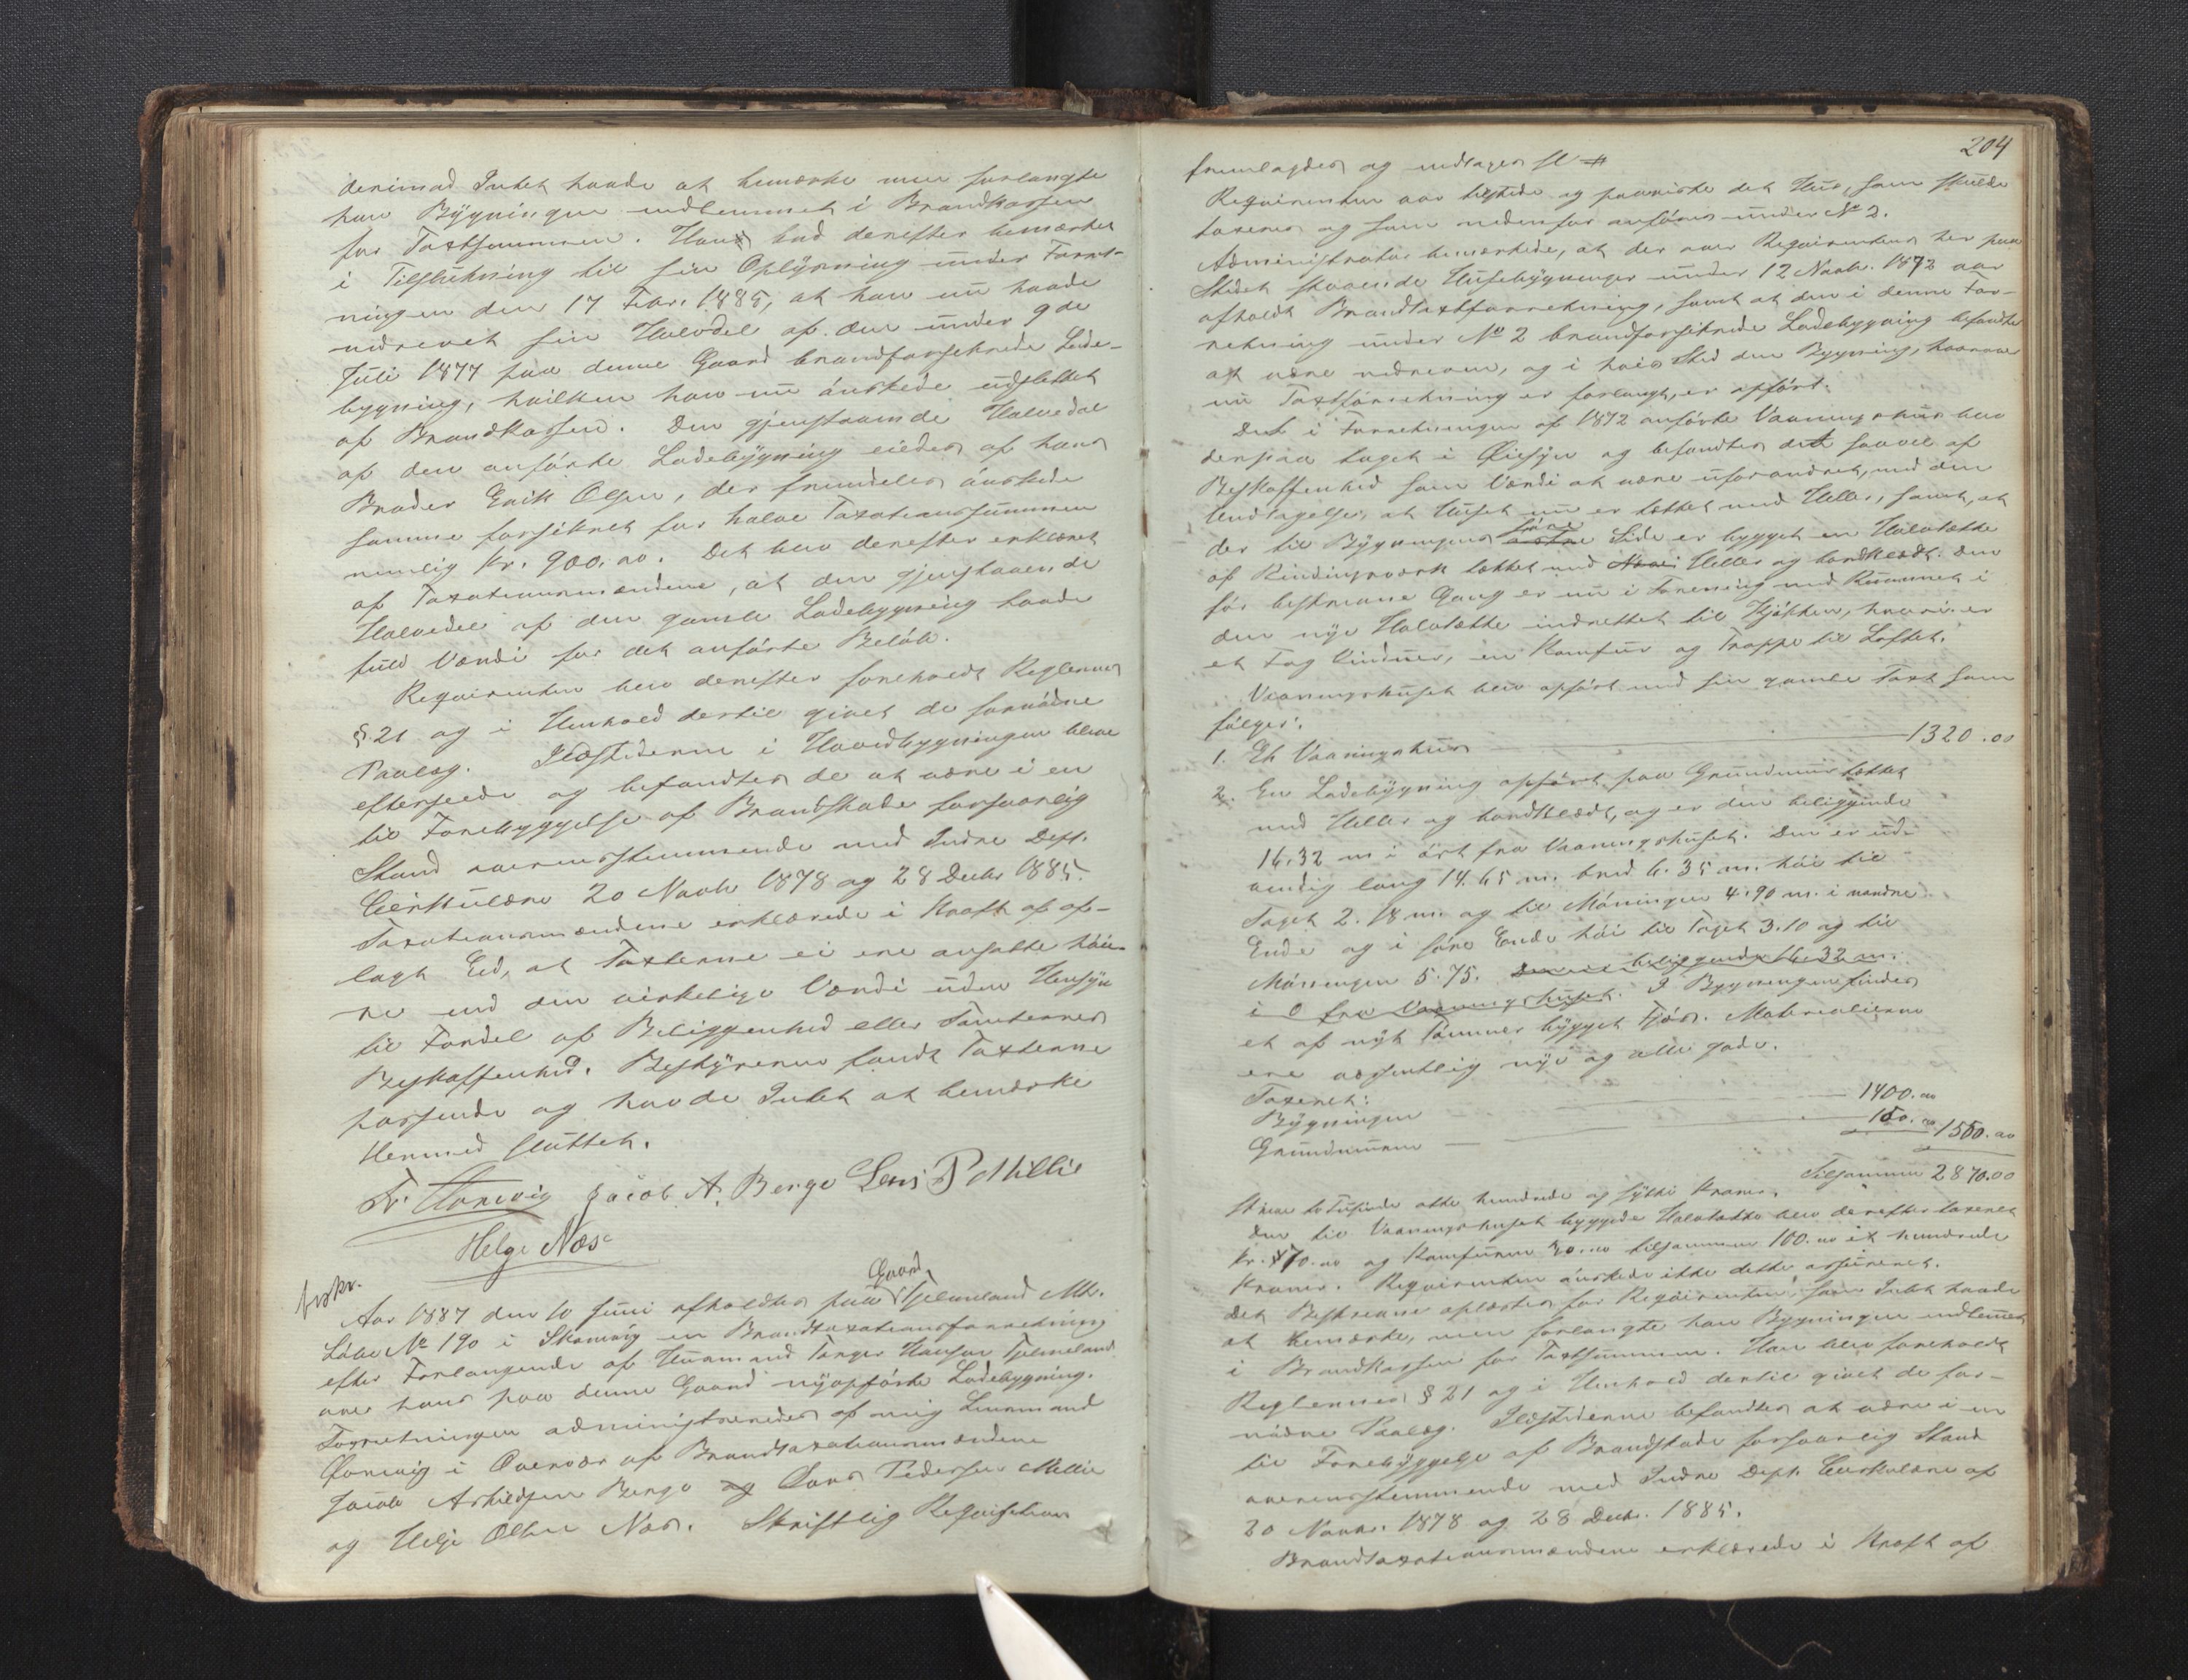 derimod Intet havde at bemærke men forlangte
han Bÿgningen indlemmet i Brandkassen
for Taxtsummen. Hans bud derefter bemærket
i Tilslutning til sin Oplÿsning under Forret-
ningen den 17 Febr. 1885, at han nu havde
nedrevet sin Halvdel af den under 9de
Juli 1877 paa denne Gaard brandforsikrede Lade-
bygning, hvilken han nu ønskede udslettet
af Brandkassen. Den gjenstaaende Halvedel
af den anførte Ladebÿgning eiedes af hans
Broder Erik Olsen, der fremdeles ønskede
samme forsikret for halve Taxationssummen
nemlig Kr. 900.00. Det blev derefter erklæret
af Taxationsmændene, at den gjenstaaende
Halvedel af den gamle Ladebygning havde
fuld Værdi for det anførte Beløb.
Requirenten blev derefter foreholdt Reglernes
§.21 og i Henhold dertil givet de fornødne
Paalæg. Ildstederne i Hovedbygningen blev
efterseede og befandtes de at være i en
til Forebyggelse af Brandskade forsvarlig
Stand overensstemmende med Indre Dept.
Cirkulære 20 Novbr 1878 og 28 Decbr 1885.
Taxationsmændene erklærede i Kraft af af-
lagt Eed, at Taxterne ei ere ansatte høie-
re end den virkelige Værdi uden Hensÿn
til Fordel af Beliggenhed eller Tomternes
Beskaffenhed. Bestÿreren fandt Taxterne
passende og havde Intet at bemærke
Hermed sluttet.
Jacob A. Berge Lars P Millie
Helge Næs
beskr.
Gaard
Aar 1887 den 10 Juni afholdtes paa Tjelmeland Mtr.
Løbe No 190 i Skonevig en Brandtaxationsforretning
efter Forlangende af Huusmand Torger Hansen Tjelmeland
over hans paa denne Gaard nÿopførte Ladebygning.
Forretningen administreredes af mig Lensmand
i Overvær af Brandtaxationsmændene
Jacob Askildsen Berge og Lars Pedersen Millie
og Helge Olsen Næs. Skriftlig Requisition
204
fremlagdes og indtages sl #
Requirenten var tilstede og paaviste det Huus, som skulde
taxeres og som nedenfor anføres under No 2.
Administrator bemærkede, at der over Requirentens her paa
Stedet staaende Husebÿgninger under 12 Novbr. 1872 var
afholdt Brandtaxtforretning, samt at den i denne For-
retning under No 2 brandforsikrede Ladebygning befandtes
at være nedreven, og i hvis Sted den Bygning, hvorover
nu Taxtforretning er forlangt, er opført.
Det i Forretningen af 1872 anførte Vaaningshus blev
derpaa taget i Øiesÿn og befandtes det saavel af
Beskaffenhed som Værdi at være uforandret, med den
Undtagelse, at Huset nu er tækket med Heller, samt, at
søre
der til Bygningens østre Side er bygget en Halvtække
af Bindingsværk tækket med Heller og bordklædt. Den
før beskrevne Gang er nu i Forening med Rummet i
den nÿe Halvtække indrettet til Kjøkken, hvori er
et Fag Vinduer, en Komfur og Trappe til Loftet.
Vaaningshuset blev opført med sin gamle Taxt som
følger:
1. Et Vaaningshus 1320.00
2. En Ladebÿgning opført paa Grundmur tækket
med Heller og bordklædt, og er den beliggende
16.32 m i øst fra Vaaningshuset. Den er ud-
vendig lang 14.65 m. bred 6.35 m. høi til
Taget 2.18 m. og til Møningen 4.90 m. i nordre
Ende og i søre Ende høi til Taget 3.10 og til
Møningen 5.75. Den er beliggende 16.32 m.
i O fra Vaaningshuset. I Bygningen findes
et af nÿt Tømmer bÿgget Fjøs. Materialierne
ere væsentlig nÿe og alle gode.
Taxeret:
Bÿgningen 1400.00
Grundmuren 150.00 1550.00
Tilsammen 2870.00
skriver totusinde otte hundrede og sÿtti Kroner.
Den til Vaaningshuset byggede Halvtække blev derefter taxeret
Kr. 70.00 og Komfuren 30.00 tilsammen 100.00 et hundrede
Kroner. Requirenten ønskede ikke dette assureret.
Det Beskrevne oplæstes for Requirenten, som Intet havde
at bemærke, men forlangte han Bygningen indlemmet
i Brandkassen for Taxtsummen. Han blev foreholdt
Reglernes § 21 og i Henhold dertil givet de for-
nødne Paalæg. Ildstederne befandtes at være i en
til Forebÿggelse af Brandskade forsvarlig Stand
overensstemmende med Indre Dept. Cirkulære af
20 Novbr. 1878 og 28 Decbr. 1885.
Brandtaxationsmændene erklærede i Kraft af